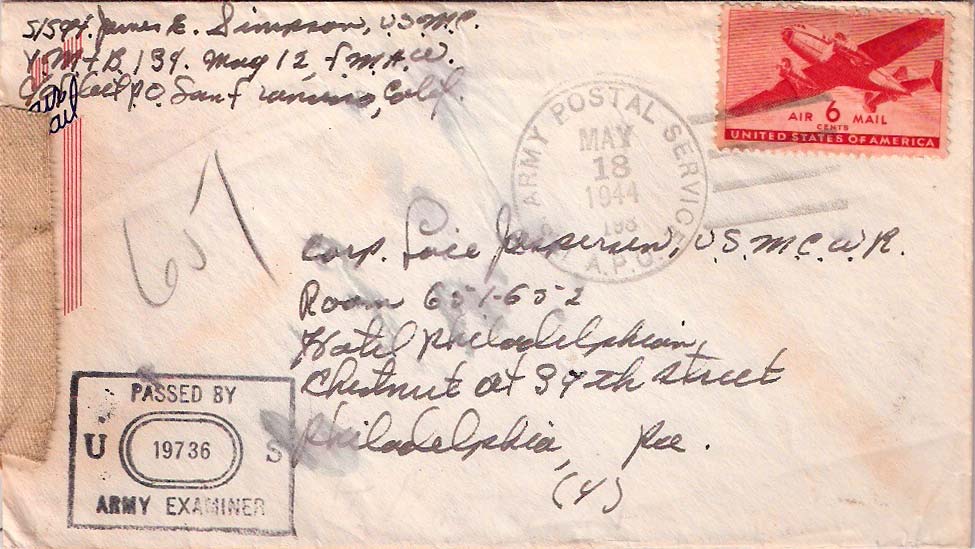 S/Sgt. James E. Simpson, U.S.M.C.
V.M.F.B. 134. Mag 12, F.M.A.W.
C/o Fleet P.O. San Francisco, Calif.
AIR 6 MAIL
CENTS
UNITED STATES OF AMERICA
ARMY POSTAL SERVICE
MAY
18
1944
198
A.P.O.
651
Corp. Jespersen, U.S.M.C.W.R.
Room 651-652
Hotel Philadelphian,
Chestnut at 39th Street
Philadelphia, Pa.
(4)
PASSED BY
U 19736 S
ARMY EXAMINER